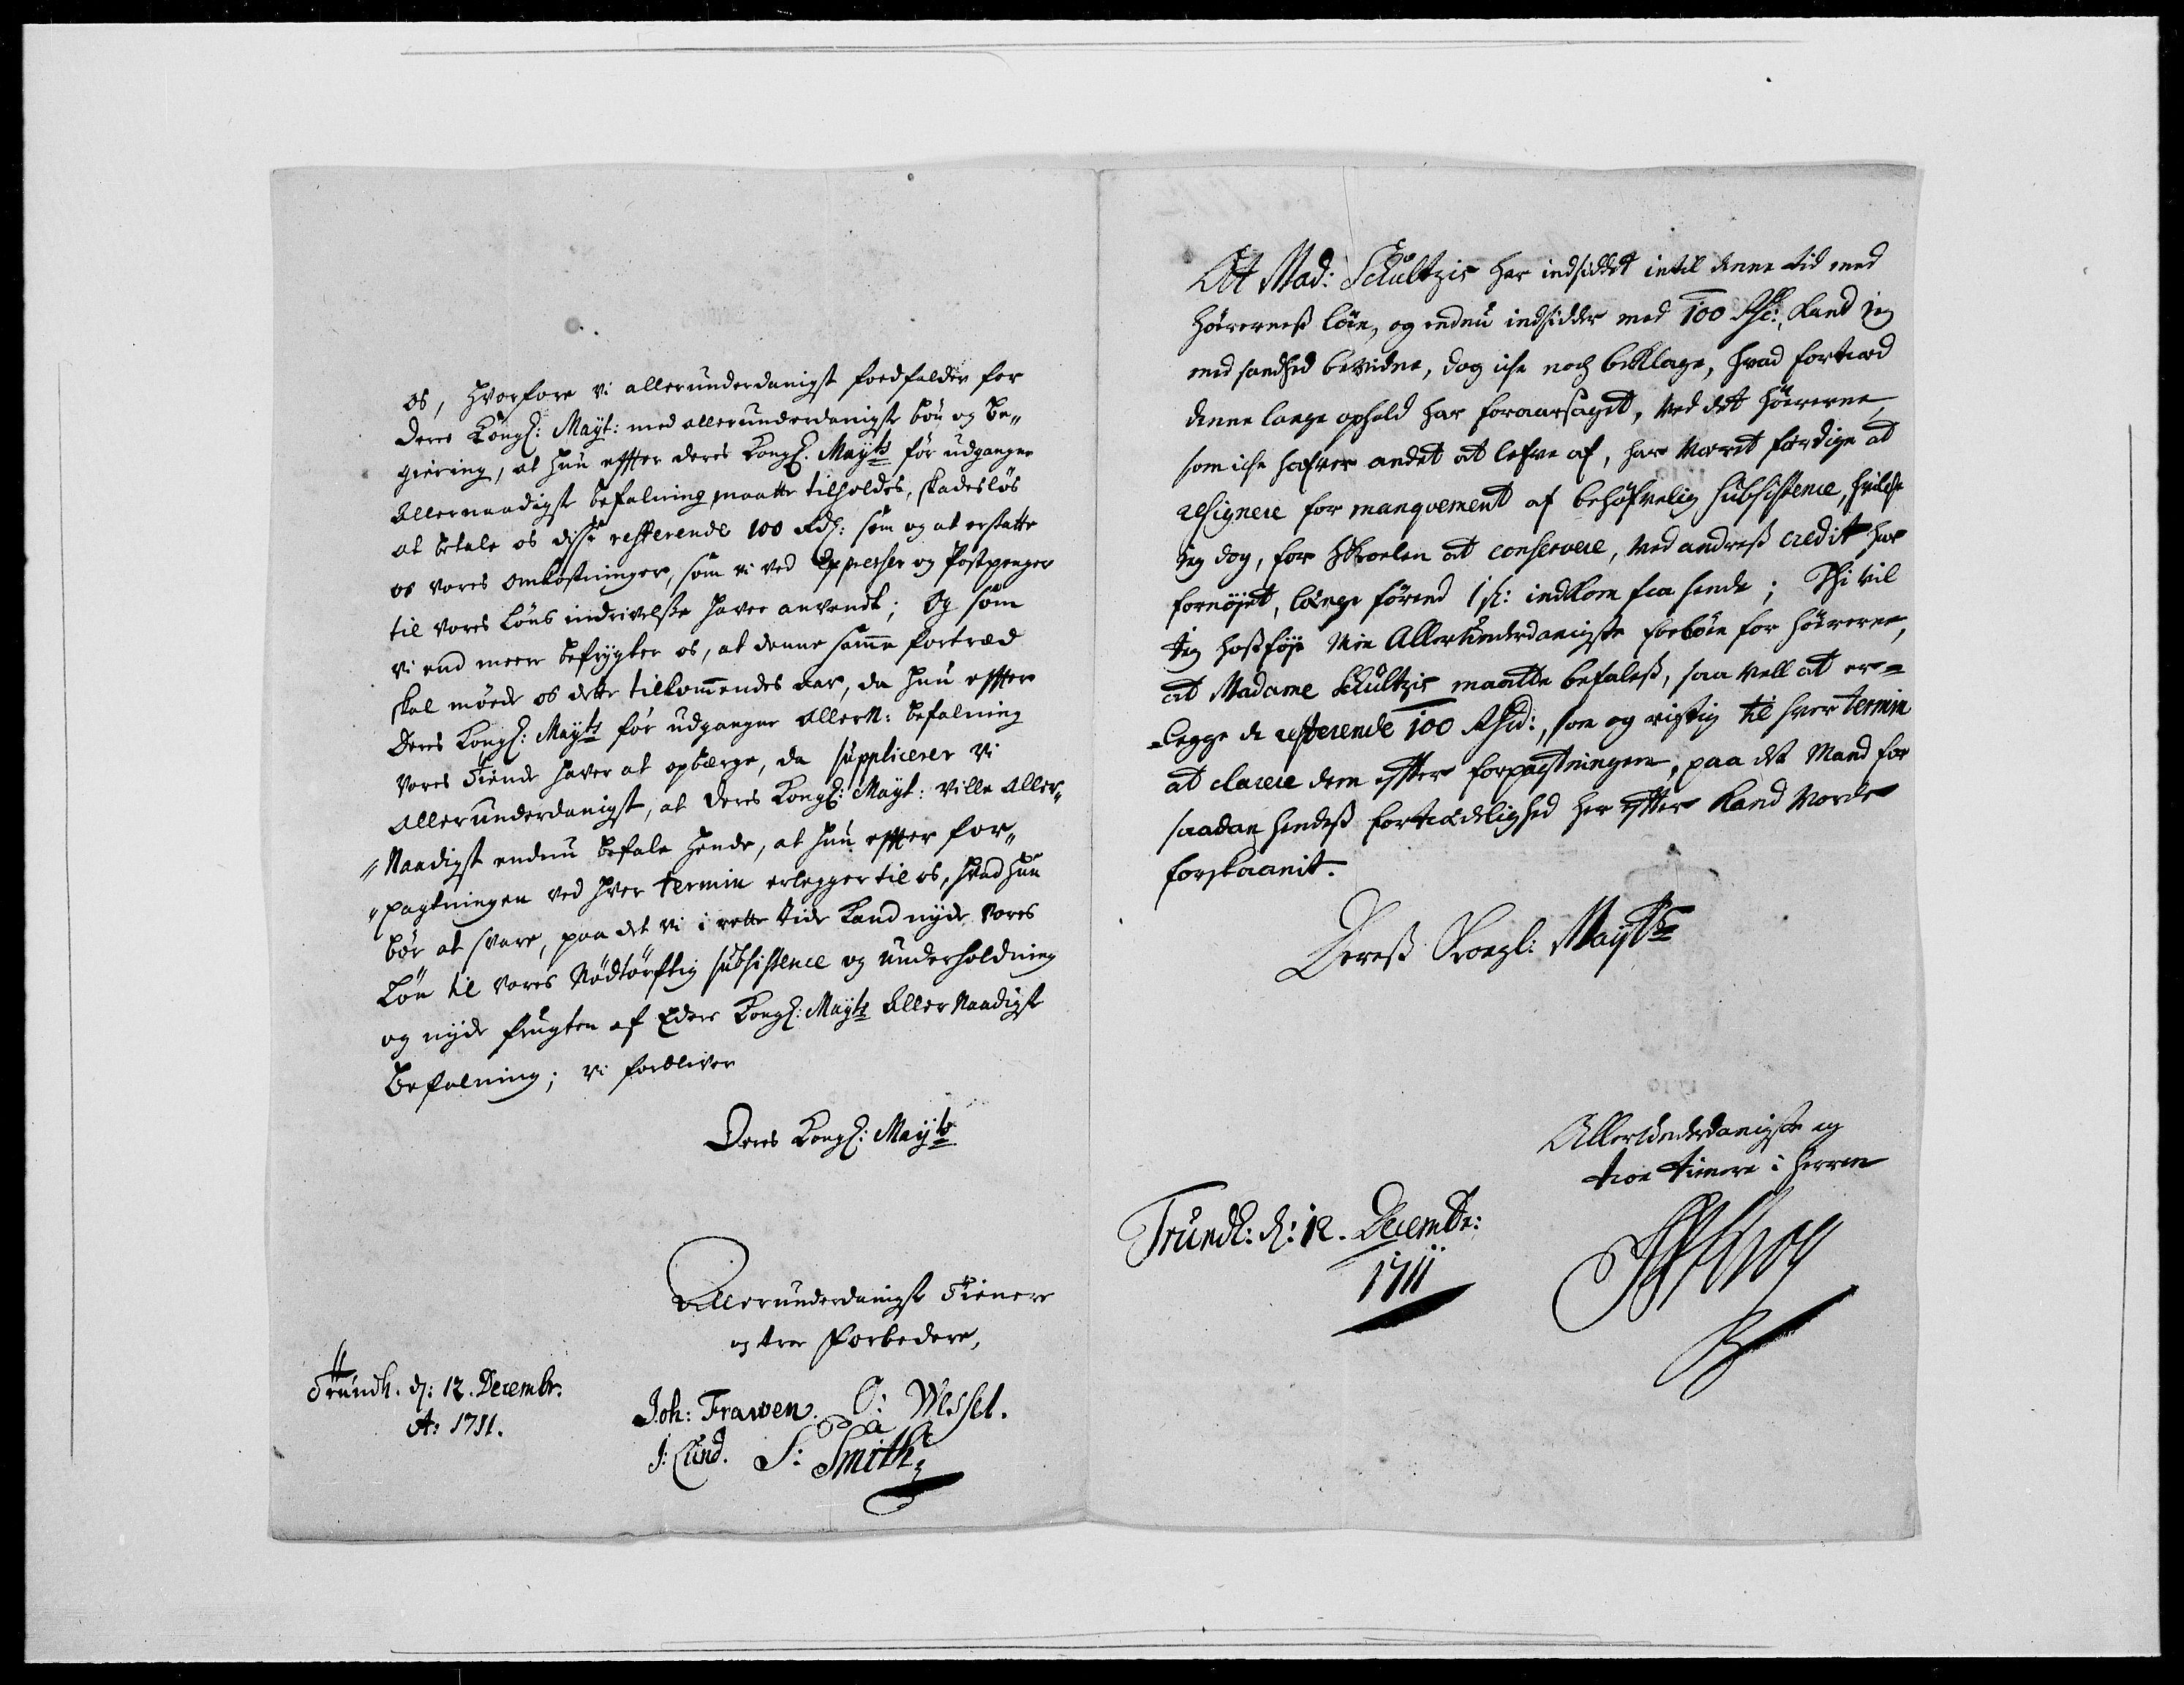 os, hvorfore vi allerunderdanigst foedfalder for
Deres Kongl: Mayt: med allerunderdanigst bön og be„
giering, at hun effter deres Kongl. Mayts för udgangne
Allernaadigst befalning maatte tilholdes, skadeslös
at betale os disse resterende 100 Rdl: som og at erstatte
os vores omkostninger, som vi ved Expresser og Postpenger
til vores Löns indrivelsse haver anvendt; Og som
vi end meere befrygter os, at denne samme fortræd
skal möede os dette tilkommendes aar, da hun effter
Deres Kongl: Mayts för udgangne Allern: befalning
vores Tiende haver at opbærge, da suppliceres vi
Allerunderdanigst, at deres Kongl: Mayt: ville Aller„
„Naadigst endnu befale hende, at hun effter for„
„pagtningen ved hver termin erlegger til os, hvad hun
bör at svare, paa det vi i rette tide kand nyde vores
Lön til vores Nödtörftig subsistence og underholdning
og nyde frugten af Eders Kongl: Mayts AllerNaadigst
Befalning; vi forbliver
Deres Kongl: Mayts
Allerunderdanigst Tienere
og troe Forbedere,
Trundh. d: 12. Decembr.
Ao: 1711.
Joh: Frawen. O: Wessel.
J: Lund. S: Smith
At Mad: Schultzis har indsiddet intil denne tid med
höreeneß löen, og endnu indsidder med 100 Rd:, kand jeg
med sandhed bevidne, dog iche noch beklage, hvad fortræd
denne lange ophold har foraarsaget, ved det höererne,
som iche hafver andet at lefve af, har været færdige at
resignere for manqvement af behöfvelig subsistence, hvilche
jeg dog, for Skoelen at conservere, ved andreß credit har
fornöjet, længe förend 1 sl: indkom fra hende; Thi vil
jeg hoßföje min Allerunderdanigste forbön for höererne,
at Madame Schultzis maatte befaleß, saa vell at er=
=legge de resterende 100 Rsd:, som og rigtig til hver termin
at clarere dem effter forpagtningen, paa det mand for
saadan hendeß fortrædelighed her effter kand vorde
forskaanit.
Dereß Kongl: Mayts
Allerunderdanigste og
troe tienere i Herren
Trundh: d: 12. Decembr:
1711